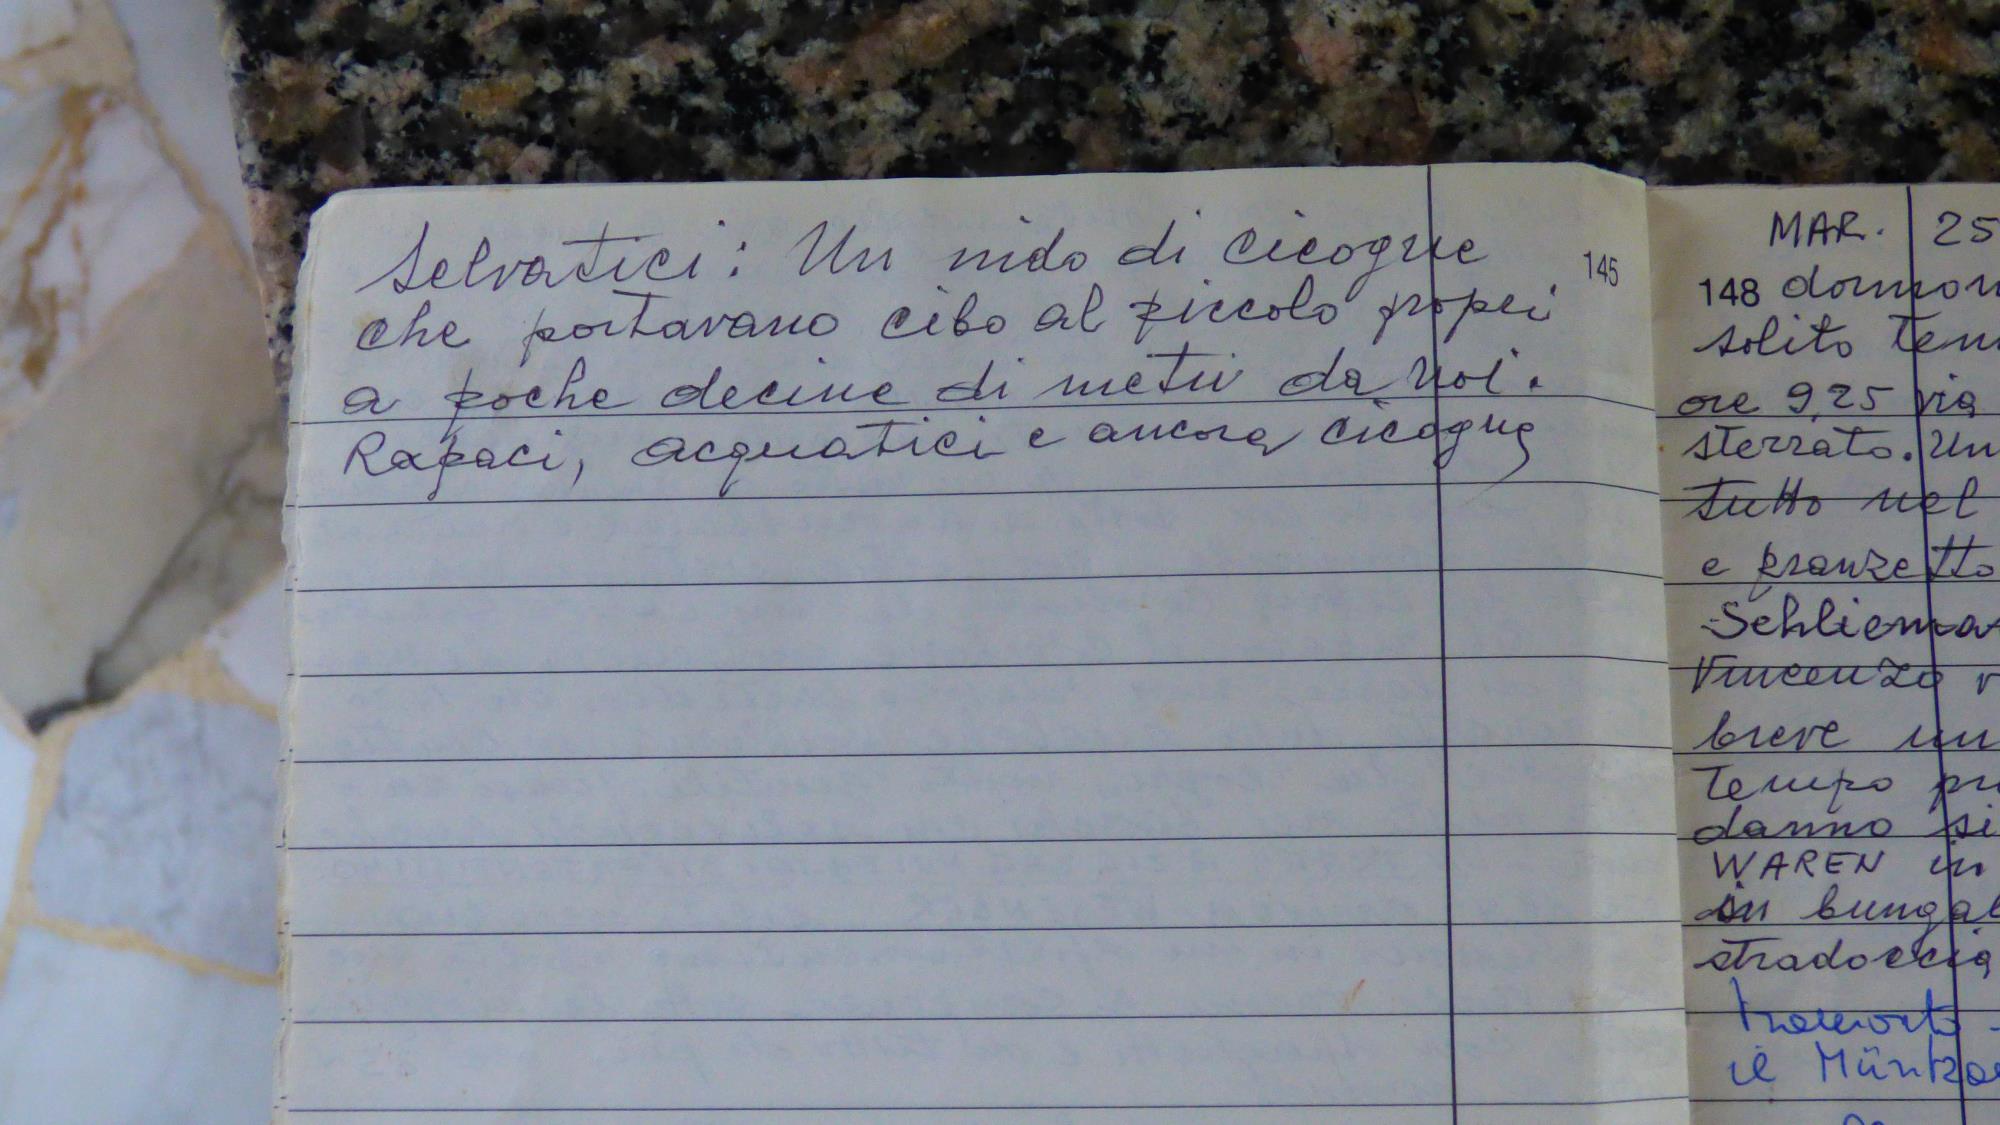 selvatici: Un nido di cicogne
145
che portavano cibo al piccolo propri
a poche decine di metri da noi.
Rapaci, acquatici e ancora cicogne
MAR. 25
148 dormon
solito tem
ore 9,25 via
sterrato. Un
tutto nel
e pranzetto
Schlieman
Vincenzo v
breve un
tempo pr
danno si
WAREN in
in bungal
stradoccia
il Müntze